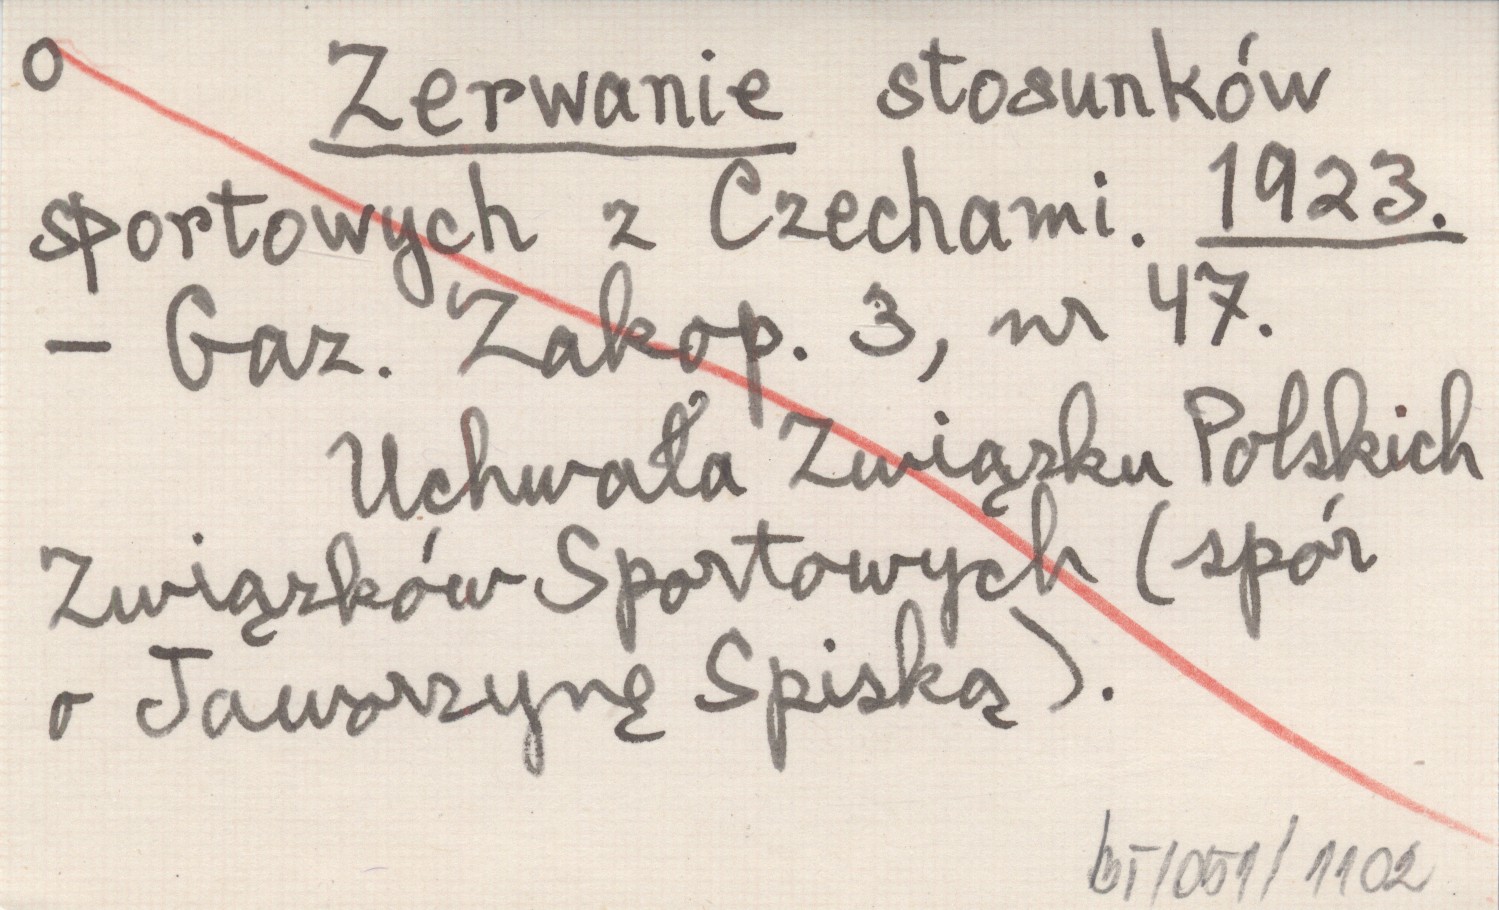 o Zerwanie stosunków
sportowych z Czechami. 1923.
- Gaz. Zakop. 3, nr 47.
Uchwała Związku Polskich
Związków Sportowych (spór
o Jaworzynę Spiską).
/051/ 1102